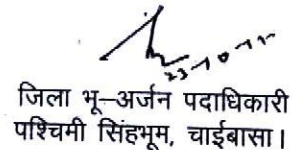 जिला भू–अर्जन पदाधिकारी
पश्चिमी सिंहभूम, चाईबासा।